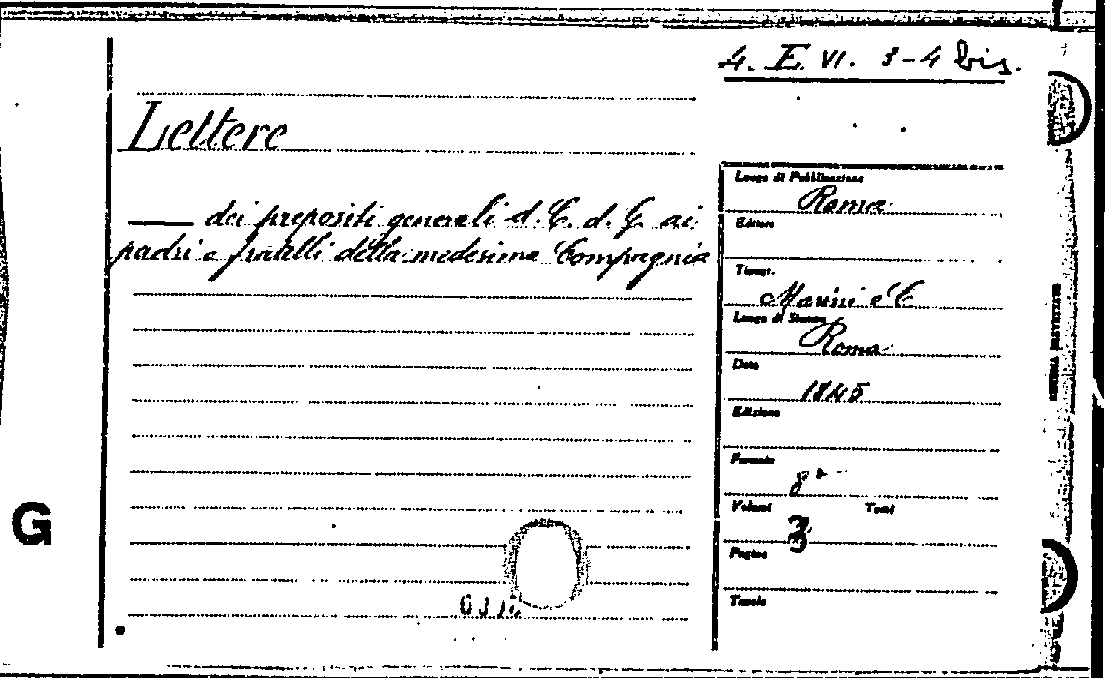 4. E. VI. 3-4 bis.
Lettere
—— dei prepositi generali d. C. d. G. ai
padri e fratelli della medesima Compagnia
Luogo di Pubblicazione
Roma
Editore
Tipogr.
Marini e C
Luogo di Stampa
Roma
Data
1845
Edizione
Formato
8°
Volumi Tomi
3
Pagine
Tavole
G